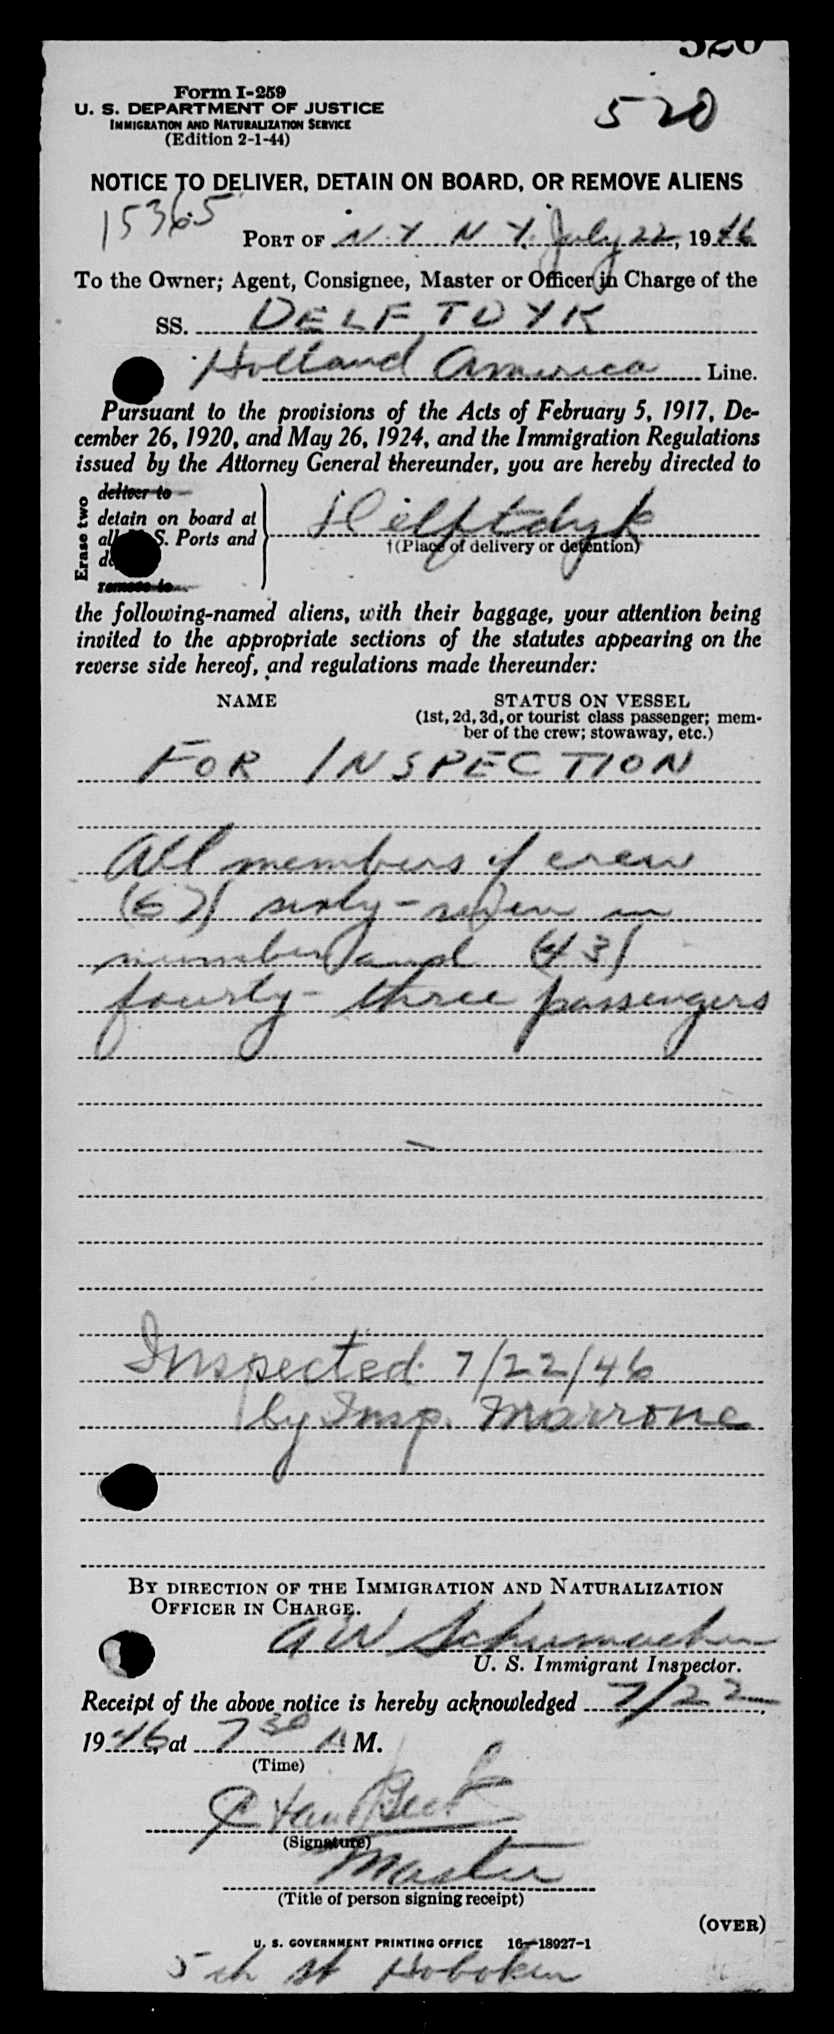 520
520
Form I-259
U. S. DEPARTMENT OF JUSTICE
IMMIGRATION AND NATURALIZATION SERVICE
(Edition 2-1-44)
NOTICE TO DELIVER, DETAIN ON BOARD, OR REMOVE ALIENS
15365
PORT OF N.Y. N.Y. July 22, 1946
To the Owner; Agent, Consignee, Master or Officer in Charge of the
SS. DELFTDYK
Holland America Line.
Pursuant to the provisions of the Acts of February 5, 1917, De-
cember 26, 1920, and May 26, 1924, and the Immigration Regulations
issued by the Attorney General thereunder, you are hereby directed to
Erase two
deliver to
detain on board at
all U. S. Ports and
remove to
Delftdyk
†(Place of delivery or detention)
the following-named aliens, with their baggage, your attention being
invited to the appropriate sections of the statutes appearing on the
reverse side hereof, and regulations made thereunder:
NAME STATUS ON VESSEL
(1st, 2d, 3d, or tourist class passenger; mem-
ber of the crew; stowaway, etc.)
FOR INSPECTION
All members of crew
(67) sixty-seven in
number and (43)
fourty-three passengers
Inspected 7/22/46
by Insp. Marrone
BY DIRECTION OF THE IMMIGRATION AND NATURALIZATION
OFFICER IN CHARGE.
AW Schumacher
U. S. Immigrant Inspector.
Receipt of the above notice is hereby acknowledged 7/22,
1946, at 7 30 A M.
(Time)
(Signature)
Master
(Title of person signing receipt)
(OVER)
U. S. GOVERNMENT PRINTING OFFICE 16—18927-1
5th St Hoboken